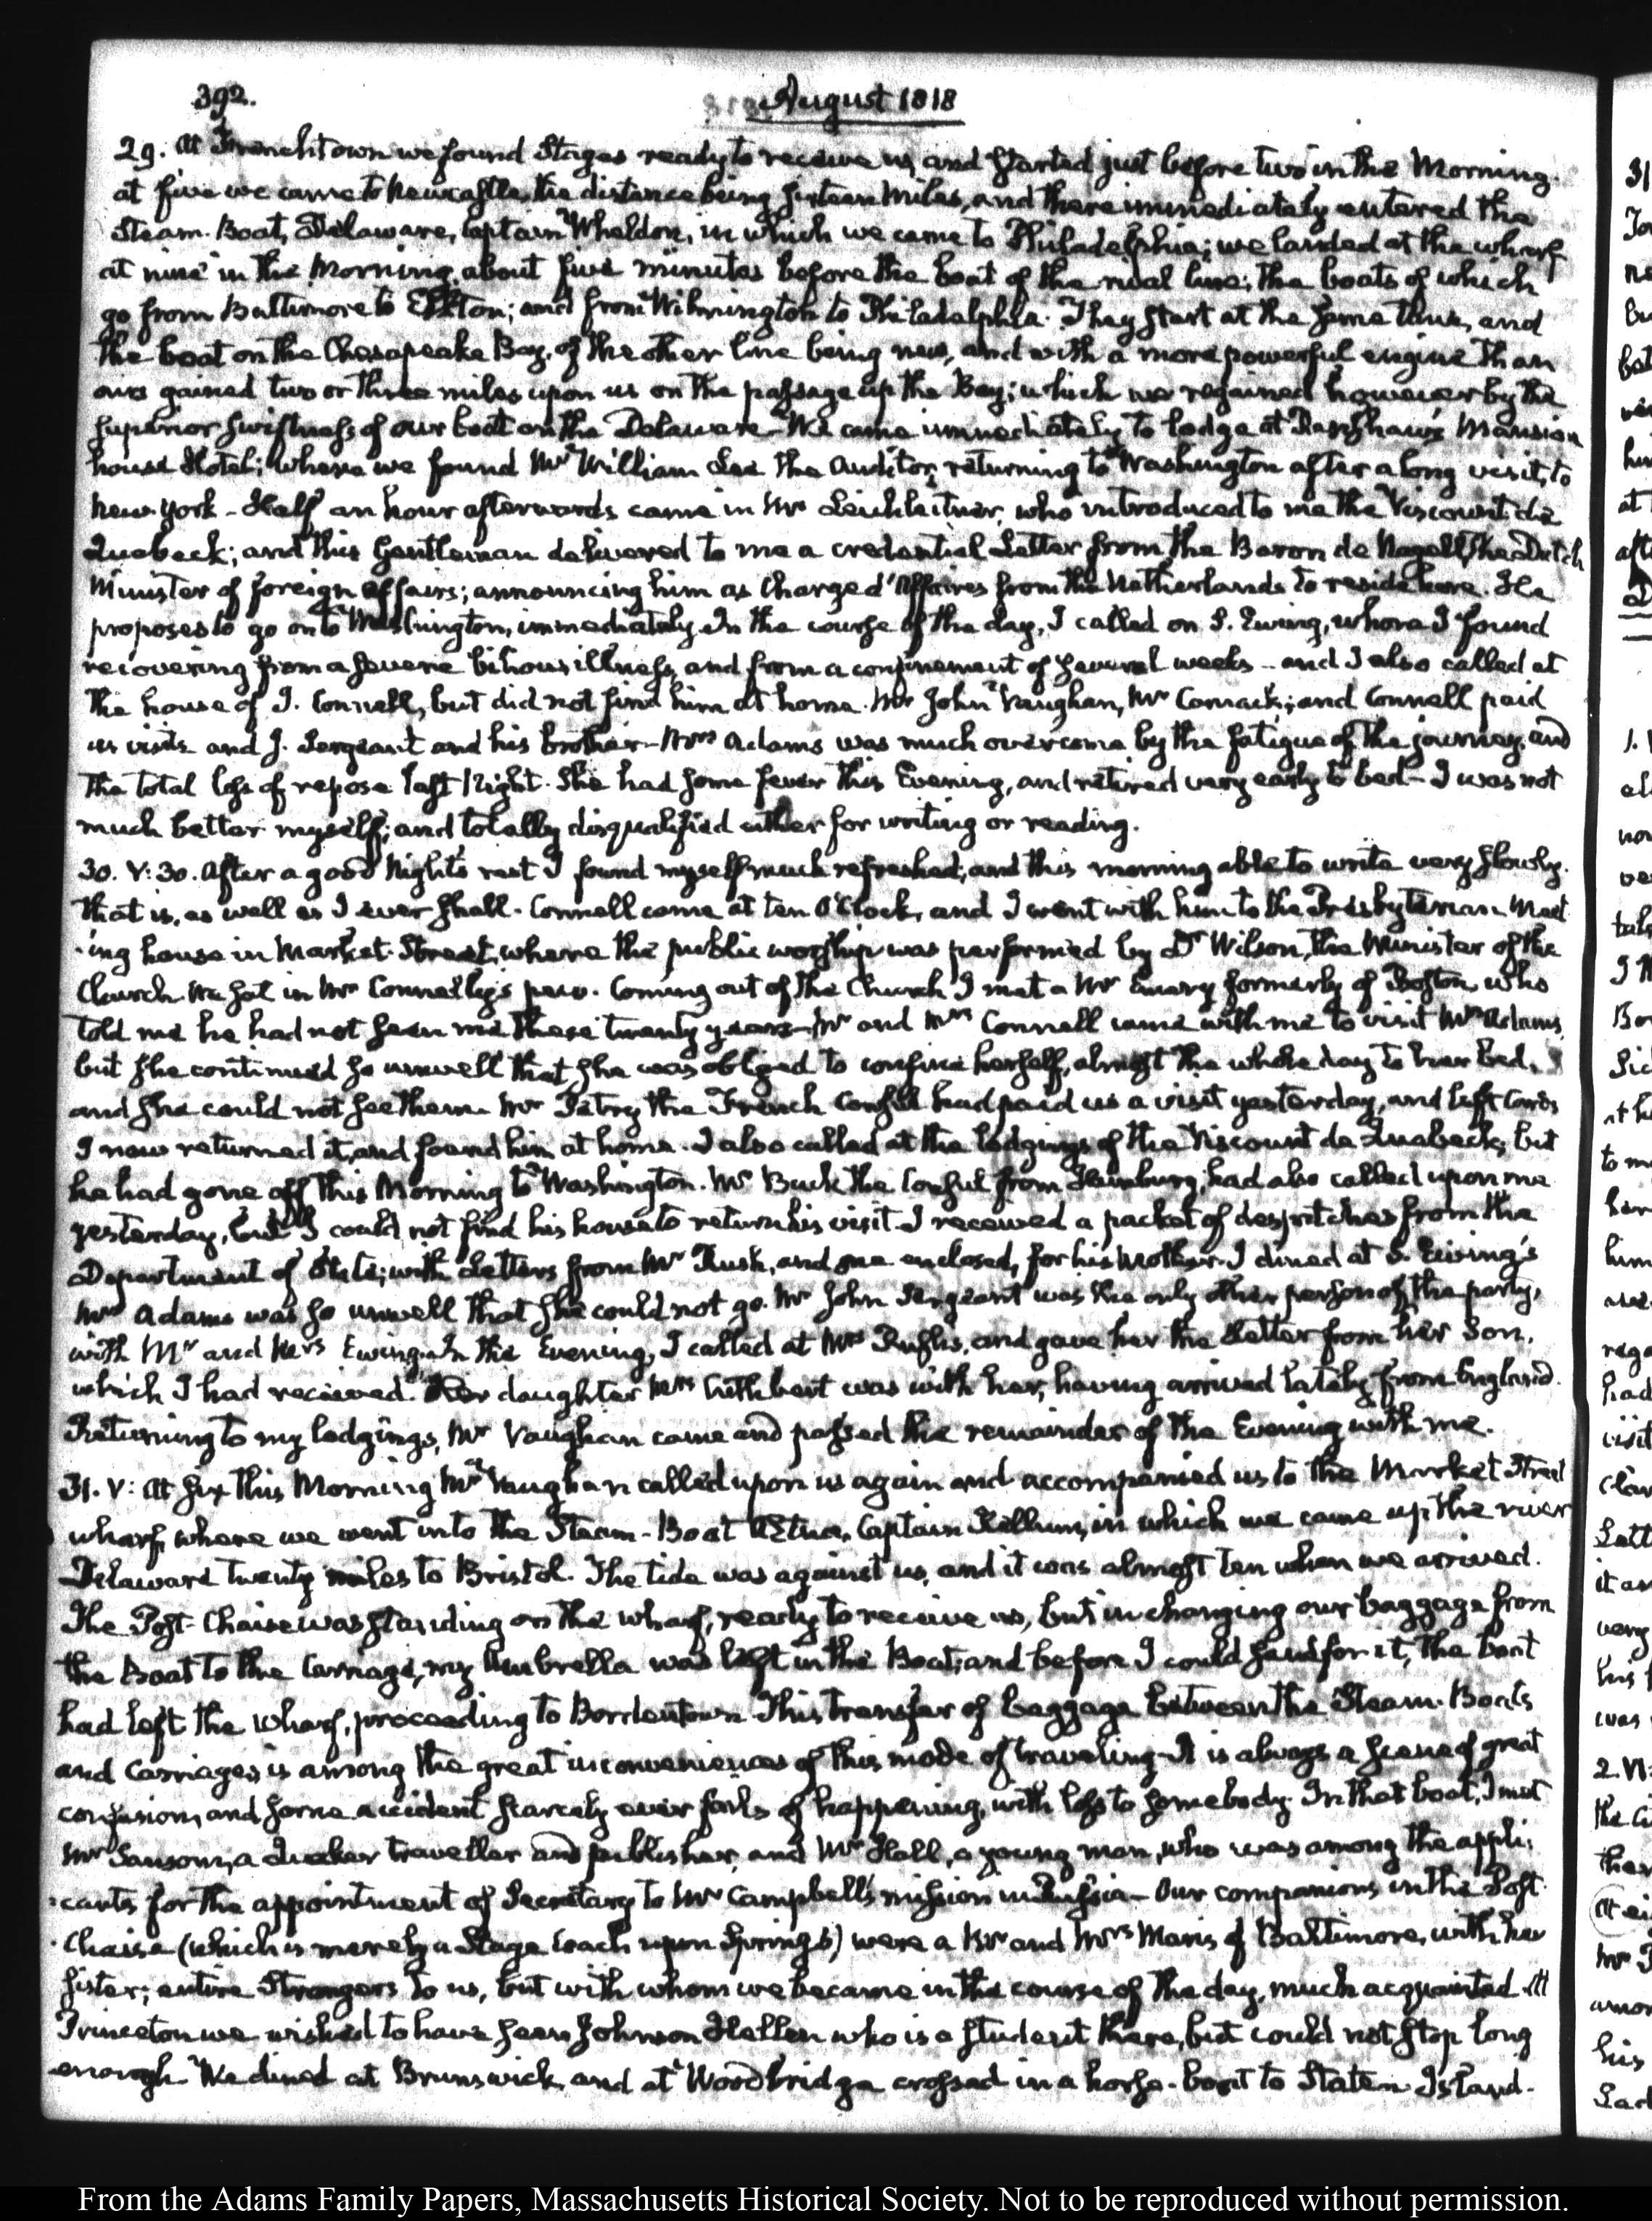 392.
August 1818
29. At Frenchtown we found Stages ready to receive us, and started just before two in the Morning.
at five we came to Newcastle, the distance being sixteen miles, and there immediately entered the
Steam-Boat, Delaware, Captain Wheldon, in which we came to Philadelphia; we landed at the wharf
at nine in the Morning, about five minutes before the boat of the rival line; the boats of which
go from Baltimore to Elkton; and from Wilmington to Philadelphia. They start at the same time, and
the boat on the Chesapeake Bay, of the other line being new, and with a more powerful engine than
ours gained two or three miles upon us on the passage up the Bay; which we regained however by the
superior swiftness of our boat on the Delaware. We came immediately to lodge at Renshaw's Mansion
house Hotel; where we found Mr William Lee the Auditor, returning to Washington after a long visit, to
New-York - Half an hour afterwards came in Mr Leichleitner, who introduced to me the Viscount de
Quabeck; and this Gentleman delivered to me a credential Letter from the Baron de Nagell, the Dutch
Minister of foreign affairs; announcing him as Chargé d'Affaires from the Netherlands to reside here. He
proposes to go on to Washington, immediately. In the course of the day, I called on S. Ewing, whom I found
recovering from a severe bilious illness, and from a confinement of several weeks - and I also called at
the house of J. Connell, but did not find him at home. Mr John Vaughan, Mr and Connell paid
us visits and J. Sergeant and his brother - Mrs Adams was much overcome by the fatigue of the journey, and
the total loss of repose last Night. She had some fever this Evening, and retired very early to bed - I was not
much better myself; and totally disqualified either for writing or reading.
30. V:30. After a good Night's rest I found myself much refreshed; and this morning able to write very slowly.
that is, as well as I ever shall. Connell came at ten O'Clock, and I went with him to the Presbyterian Meet
-ing house in Market-Street, where the public worship was performed by Dr Wilson, the Minister of the
Church. We sat in Mr Connelly's pew. Coming out of the Church I met a Mr Emery formerly of Boston, who
told me he had not seen me these twenty years - Mr and Mrs Connell came with me to visit Mrs Adams,
but she continued so unwell that she was obliged to confine herself, almost the whole day to her bed,
and she could not see them. Mr Petry the French Consul had paid us a visit yesterday, and left Cards
I now returned it, and found him at home. I also called at the lodgings of the Viscount de Quabeck, but
he had gone off this Morning to Washington. Mr Buck the Consul from Hamburg, had also called upon me
yesterday, but I could not find his house to return his visit. I received a packet of despatches from the
Department of State; with Letters from Mr Rush, and one enclosed, for his Mother. I dined at S. Ewing's
Mrs Adams was so unwell that she could not go. Mr John Sergeant was the only other person of the party,
with Mr and Mrs Ewing. In the Evening, I called at Mrs Rush's, and gave her the Letter from her Son,
which I had received. Her daughter Mrs Cuthbert was with her, having arrived lately from England.
Returning to my lodgings, Mr Vaughan came and passed the remainder of the Evening with me.
31. V: At six this Morning Mr Vaughan called upon us again and accompanied us to the Market Street
wharf, where we went into the Steam-Boat Ætna, Captain Kellum, in which we came up the river
Delaware twenty miles to Bristol. The tide was against us, and it was almost ten when we arrived.
The Post-Chaise was standing on the wharf, ready to receive us, but in changing our baggage from
the Boat to the Carriage, my Umbrella was left in the Boat; and before I could send for it, the boat
had left the wharf, proceeding to Bordentown. This transfer of baggage between the Steam-Boats
and Carriages is among the great inconveniences of this mode of traveling - It is always a scene of great
confusion, and some accident scarcely ever fails of happening, with loss to somebody. In that boat, I met
Mr Sansom, a Quaker traveller and publisher, and Mr Hall, a young man, who was among the appli-
-cants for the appointment of Secretary to Mr Campbell's mission in Russia - Our companions in the Post-
-Chaise (which is merely a Stage Coach upon Springs) were a Mr and Mrs Maris of Baltimore, with her
sister; entire Strangers to us, but with whom we became in the course of the day, much acquainted. At
Princeton we wished to have seen Johnson Hellen who is a student there, but could not stop long
enough. We dined at Brunswick, and at Woodbridge crossed in a horse-boat to Staten-Island.
From the Adams Family Papers, Massachusetts Historical Society. Not to be reproduced without permission.